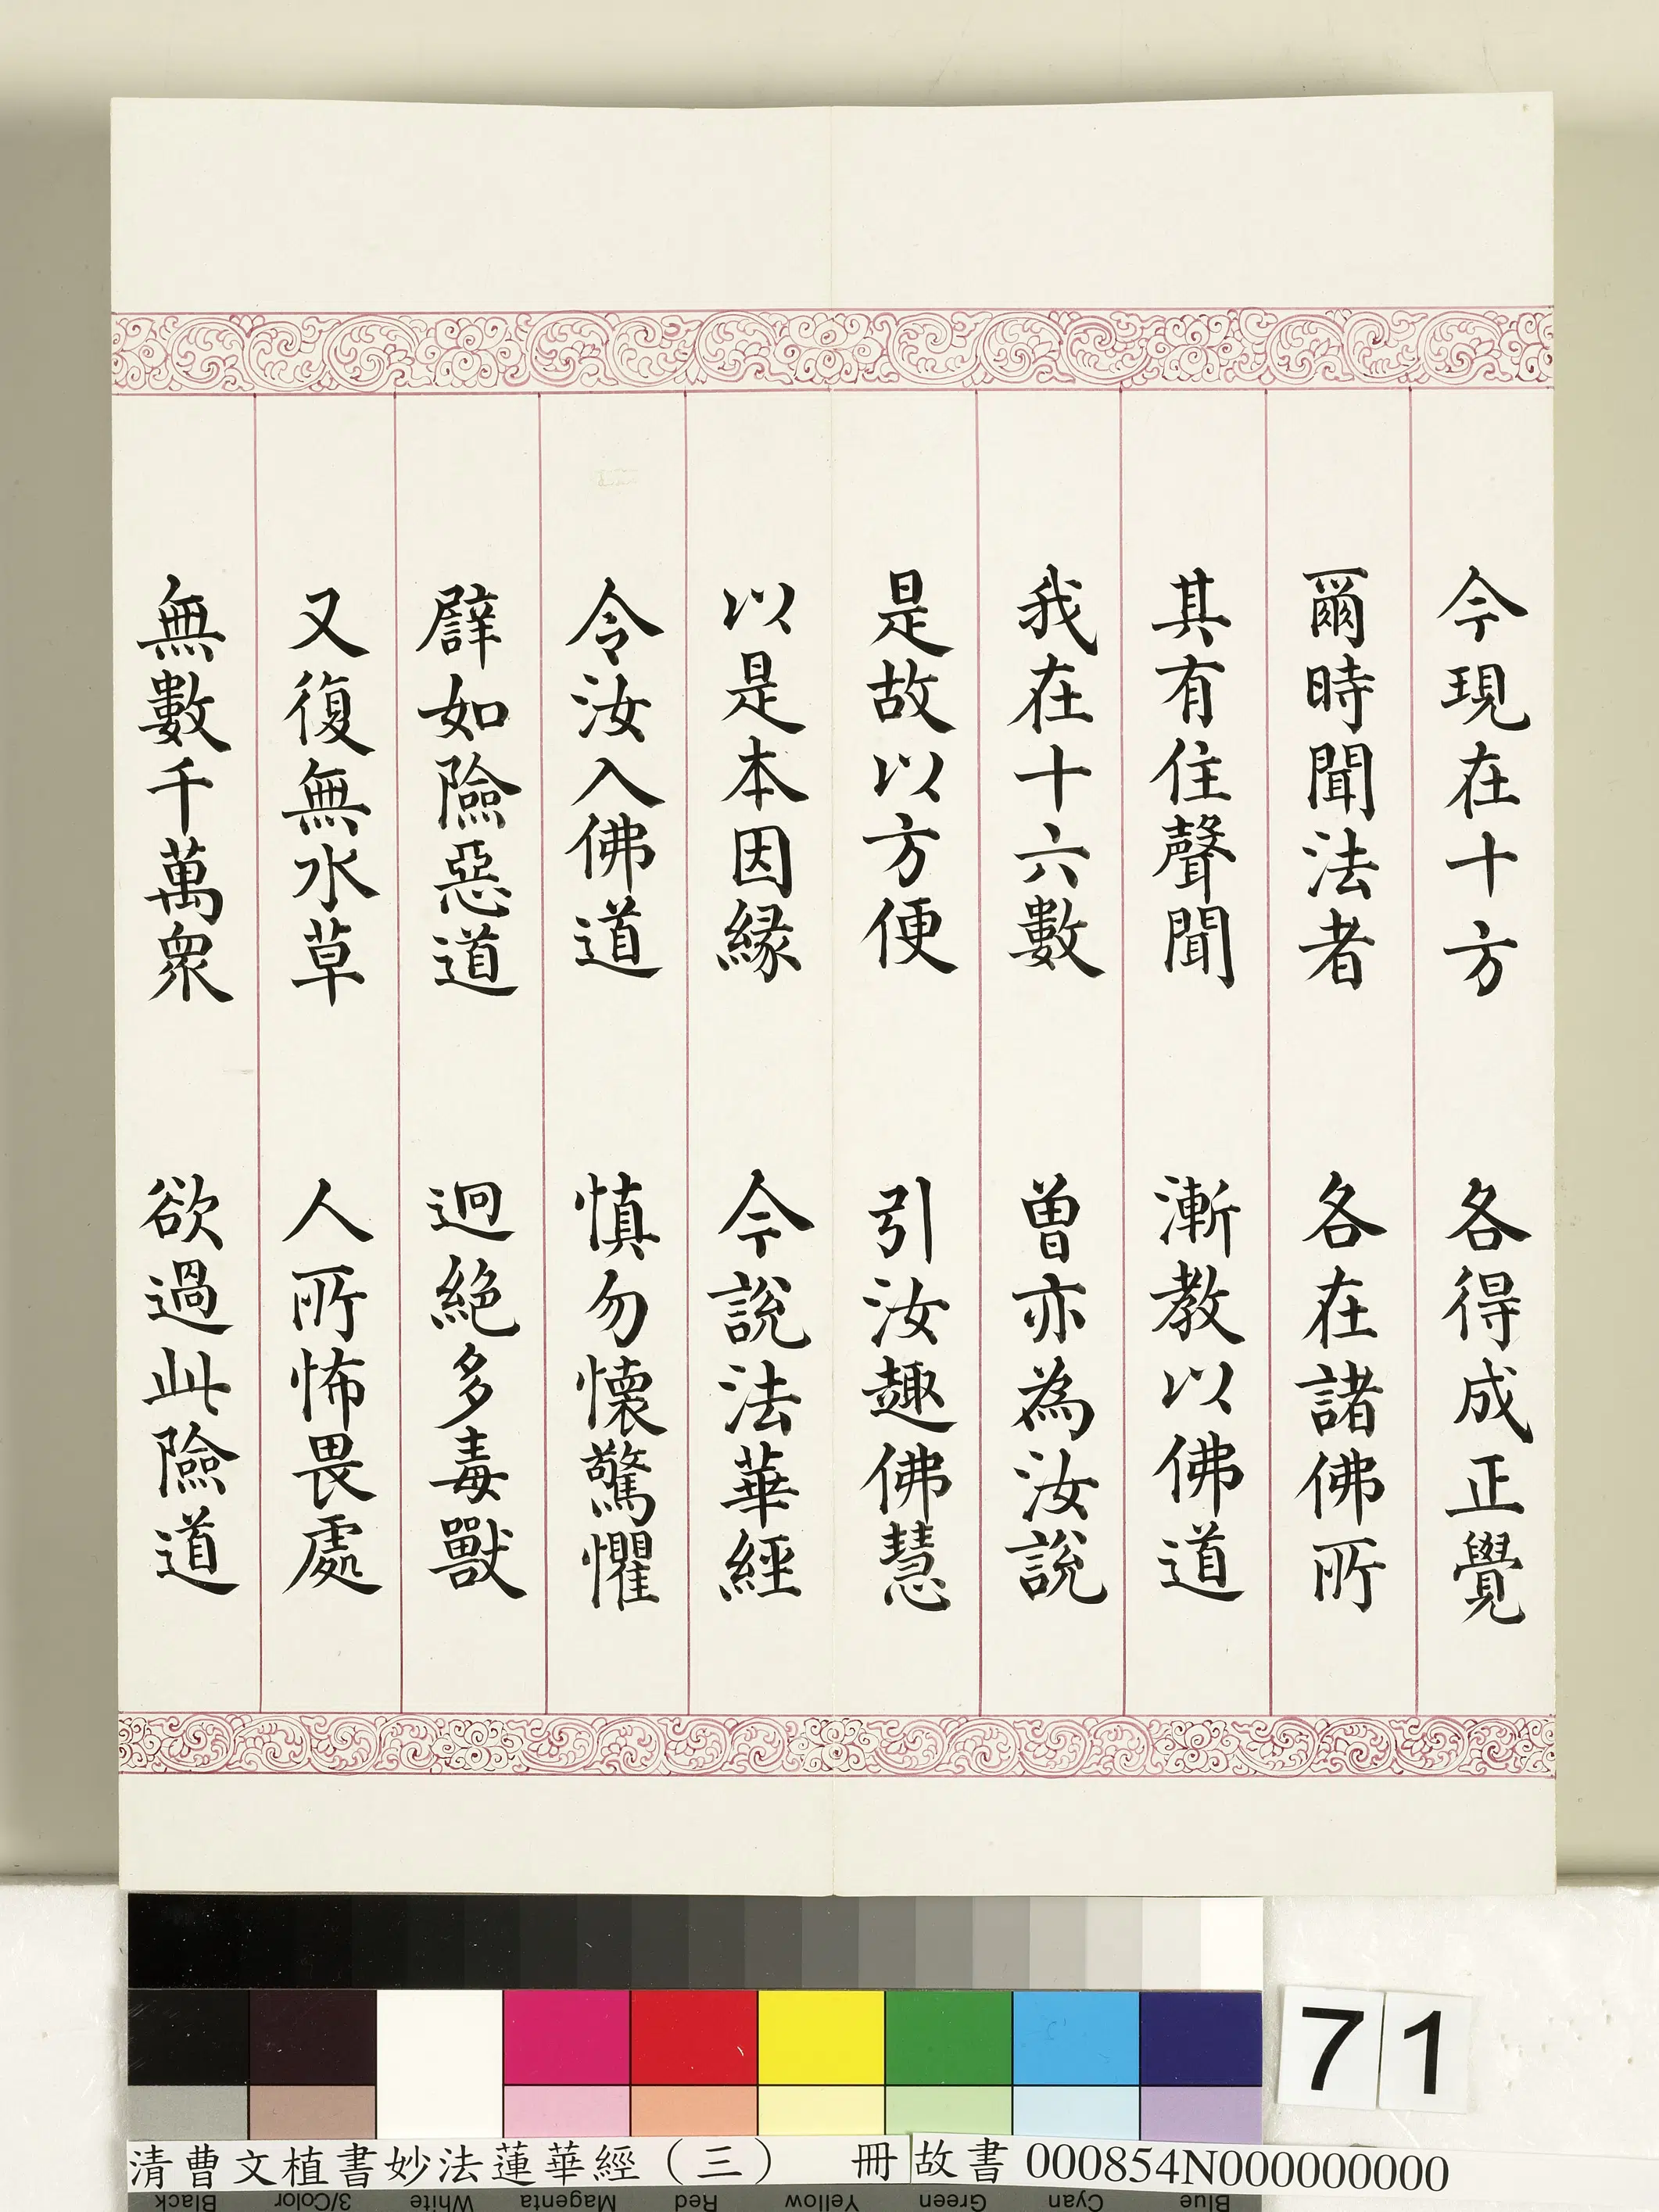 今現在十方　各得成正覺
爾時聞法者　各在諸佛所
其有住聲聞　漸教以佛道
我在十六數　曾亦為汝說
是故以方便　引汝趣佛慧
以是本因緣　今說法華經
令汝入佛道　慎勿懷驚懼
譬如險惡道　迥絕多毒獸
又復無水草　人所怖畏處
無數千萬眾　欲過此險道
71
清曹文植書妙法蓮華經（三）　冊
故書 000854N000000000
Black 3/Color White Magenta Red Yellow Green Cyan Blue